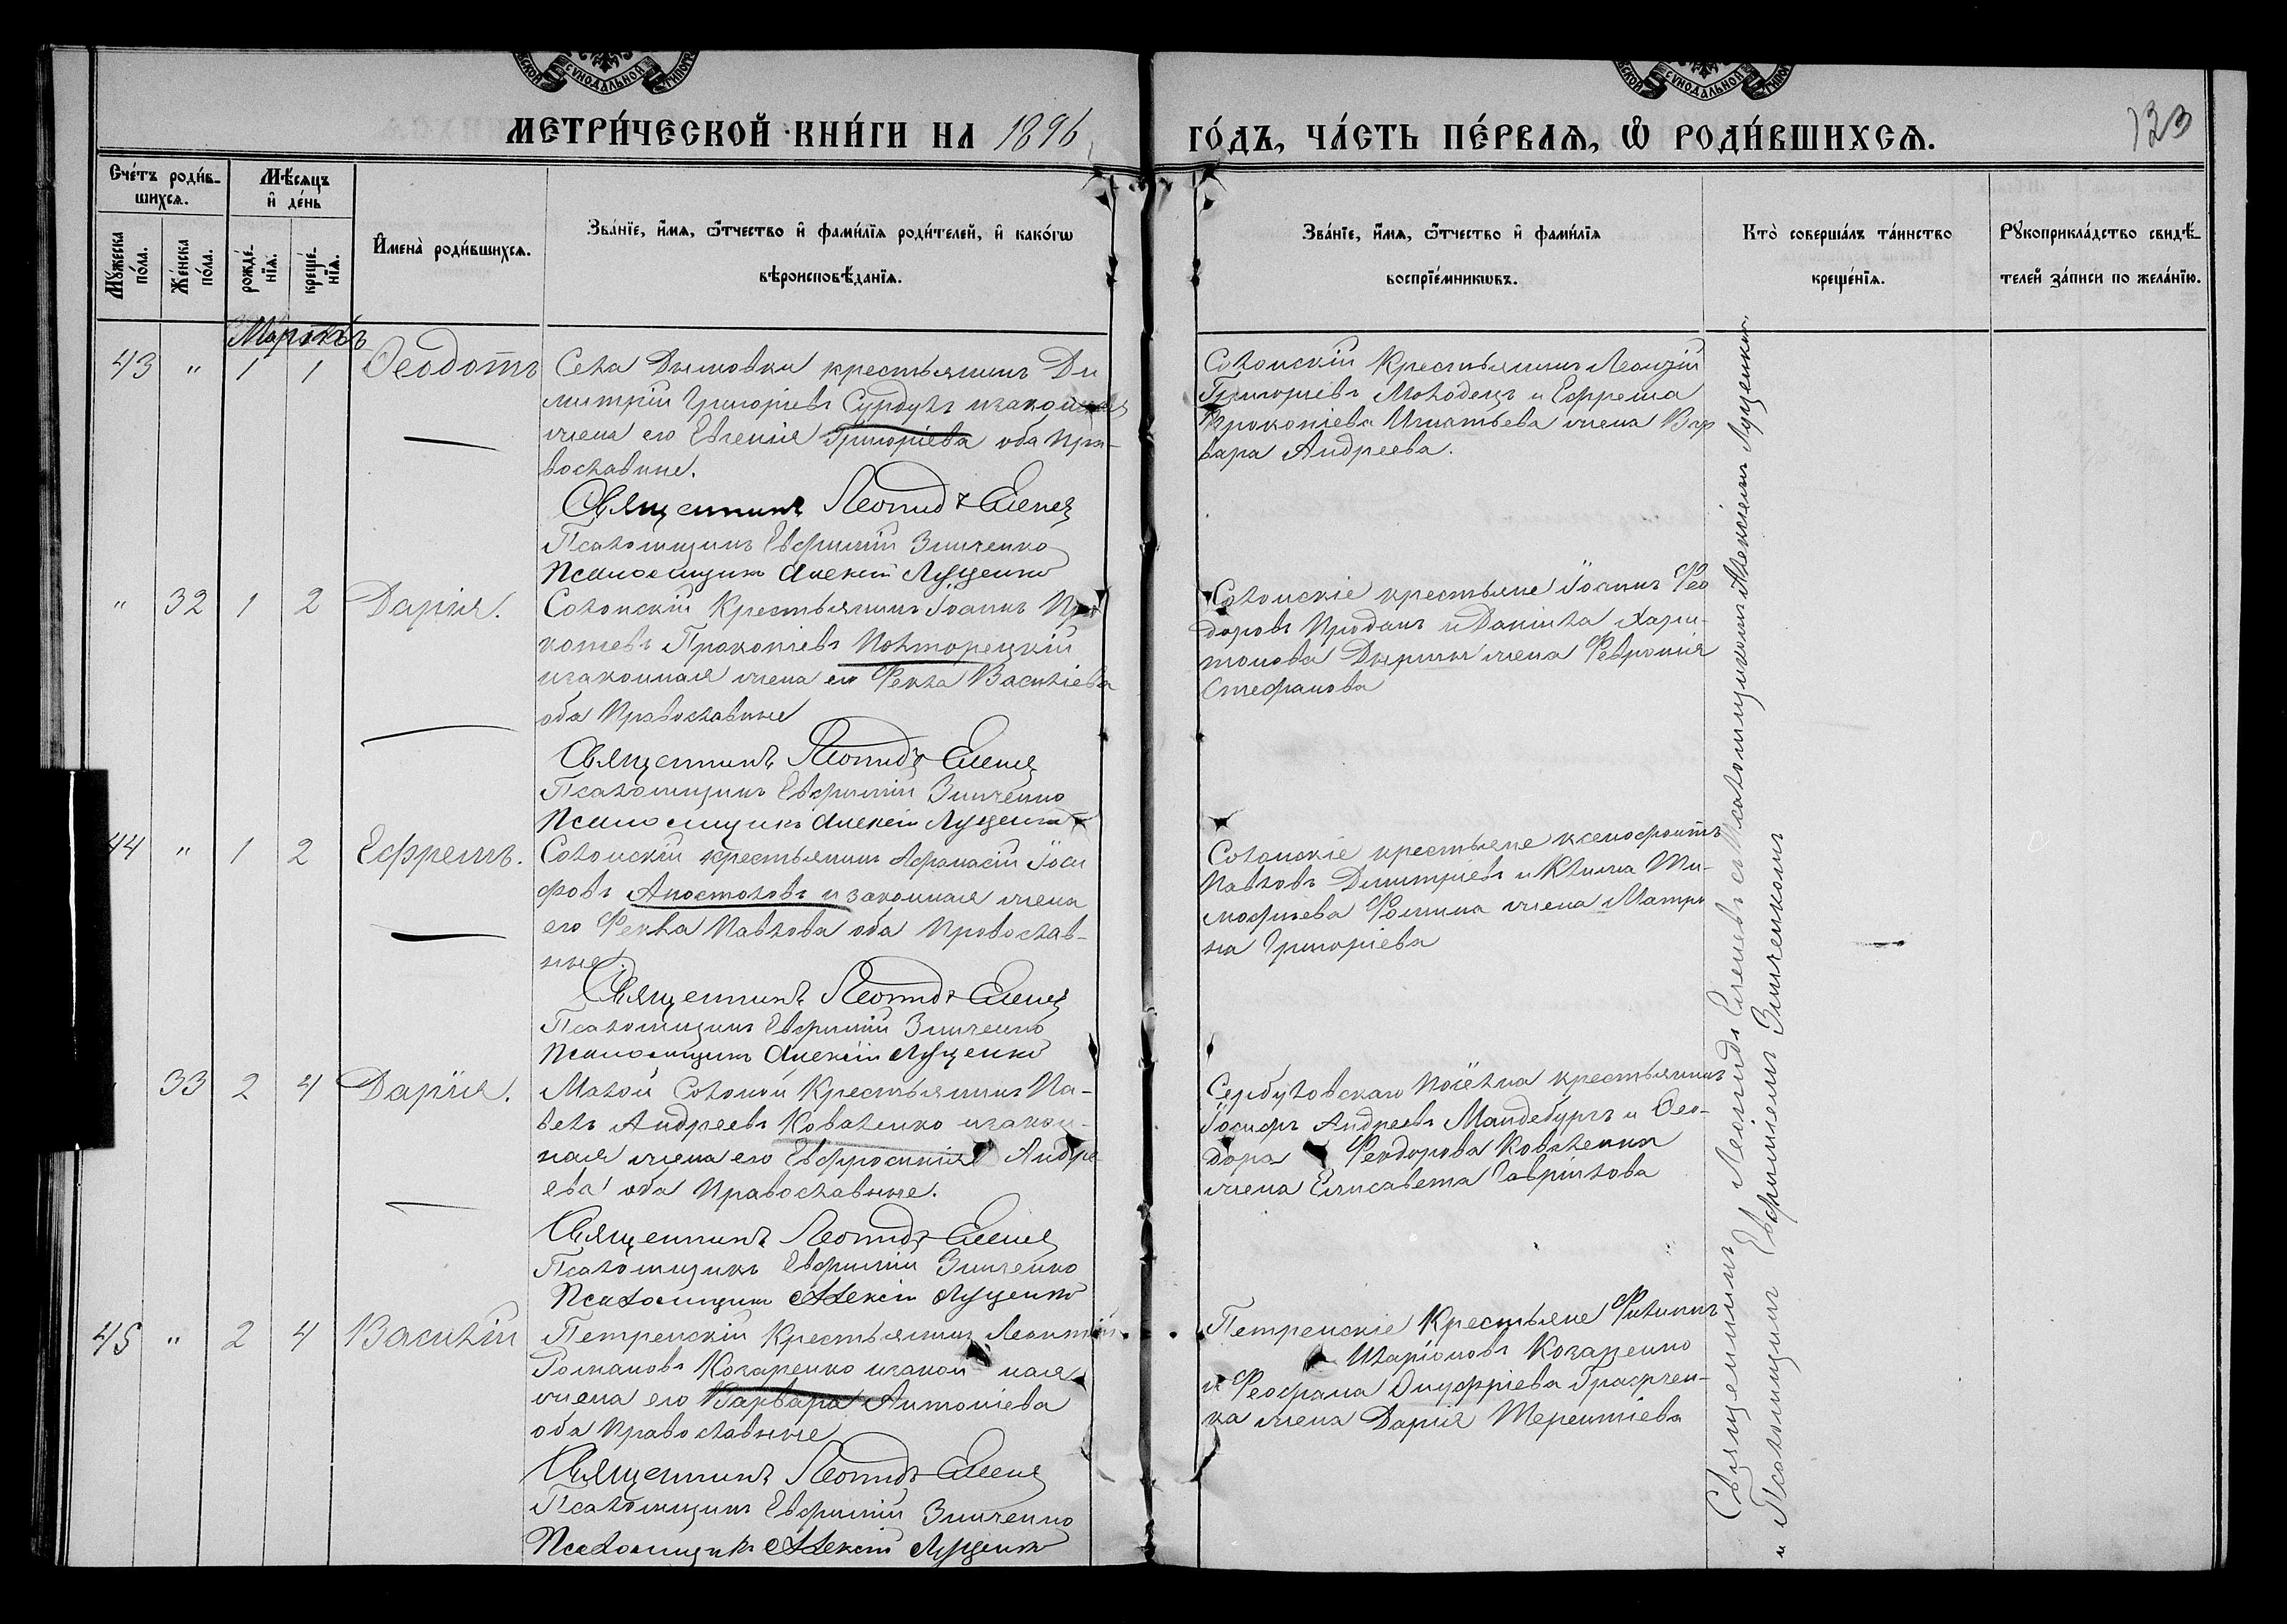 МЕТРИ́ЧЕСКОЙ КНИ́ГИ НА 1896
ГО́ДЪ, ЧА́СТЬ ПЕ́РВАѦ, Ѡ РОДИ́ВШИХСѦ.
123
Сче́тъ роди́в-
шихсѧ.
Мѣ́сѧцъ
и҆ де́нь
Мꙋ́жеска
по́ла.
Же́нска
по́ла.
рожде́-
нїѧ.
креще́-
нїѧ.
И҆мена̀ роди́вшихсѧ.
Зва́нїе, и҆́мѧ, ѻ҆́тчество и҆ фами́лїѧ роди́телей, и҆ како́гѡ
вѣроисповѣ́данїѧ.
Зва́нїе, и҆́мѧ, ѻ҆́тчество и҆ фами́лїѧ
воспрїе́мникѡвъ.
Кто̀ соверша́лъ та́инство
креще́нїѧ.
Рꙋкоприкла́дство свидѣ́-
телей за́писи по жела́нїю.
Мартъ
43 " 1 1 Ѳеодотъ
Села Дымовки крестьянинъ Ди
митрій Григоріевъ Сурдулъ и законная
жена его Евгенія Григоріева оба пра-
вославные.
Священникъ Леонид Еленев
Псаломщикъ Евфимій Зинченко
Псаломщикъ Алексій Луценко
Солонскій Крестьянинъ Леонтій
Григоріевъ Молодецъ и Ефрема
Прокопіева Игнатьева жена Вар
вара Андреева.
" 32 1 2 Дарія.
Солонскій Крестьянинъ Іоаннъ Про
копіевъ Полторецкій
и законная жена его Фекла Василіева
оба Православные
Священникъ Леонидъ Еленев
Псаломщикъ Евфимій Зинченко
Псаломщикъ Алексій Луценко
Солонскіе крестьяне Іоаннъ Фео
доровъ Проданъ и Даніила Хари-
тонова жена Февронія
Стефанова
44 " 1 2 Ефремъ.
Солонскій крестьянинъ Афанасій Іоси
фовъ Апостоловъ и законная жена
его Фекла Павлова оба Православ-
ные
Священникъ Леонид Еленев
Псаломщикъ Евфимій Зинченко
Псаломщикъ Алексій Луценко
Солонскіе крестьяне Ксенофонтъ
Павловъ Димитріевъ и Клима Ти-
мофьева Фомина жена Матро
на Григоріева
33 2 4 Дарія.
Малой Солоной Крестьянинъ Па-
велъ Андреевъ Коваленко и закон-
ная жена его Евфросинія Андре
ева оба Православные.
Священникъ Леонидъ Еленев
Псаломщикъ Евфимій Зинченко
Псаломщикъ Алексій Луценко
Сербуловскаго крестьянинъ
Іосифъ Андреевъ Мандебуръ и Ѳео-
дора Феодорова Коваленка
жена Елисавета Гавріилова
45 " 2 4 Василій
Петренскій Крестьянинъ Леонтій
Романовъ Кочаренко и законная
жена его Варвара Антоніева
оба Православные
Священникъ Леонидъ Еленев
Псаломщикъ Евфимій Зинченко
Псаломщикъ Алексій Луценко
Петренскіе Крестьяне Филипъ
Иларіоновъ Кочаренко
и Феофана Онуфріева
жена Дарія Терентіева
Священникъ Леонидъ Еленевъ съ Псаломщикомъ Алексіемъ Луценкомъ
и Псаломщикъ Евфиміемъ Зинченкомъ